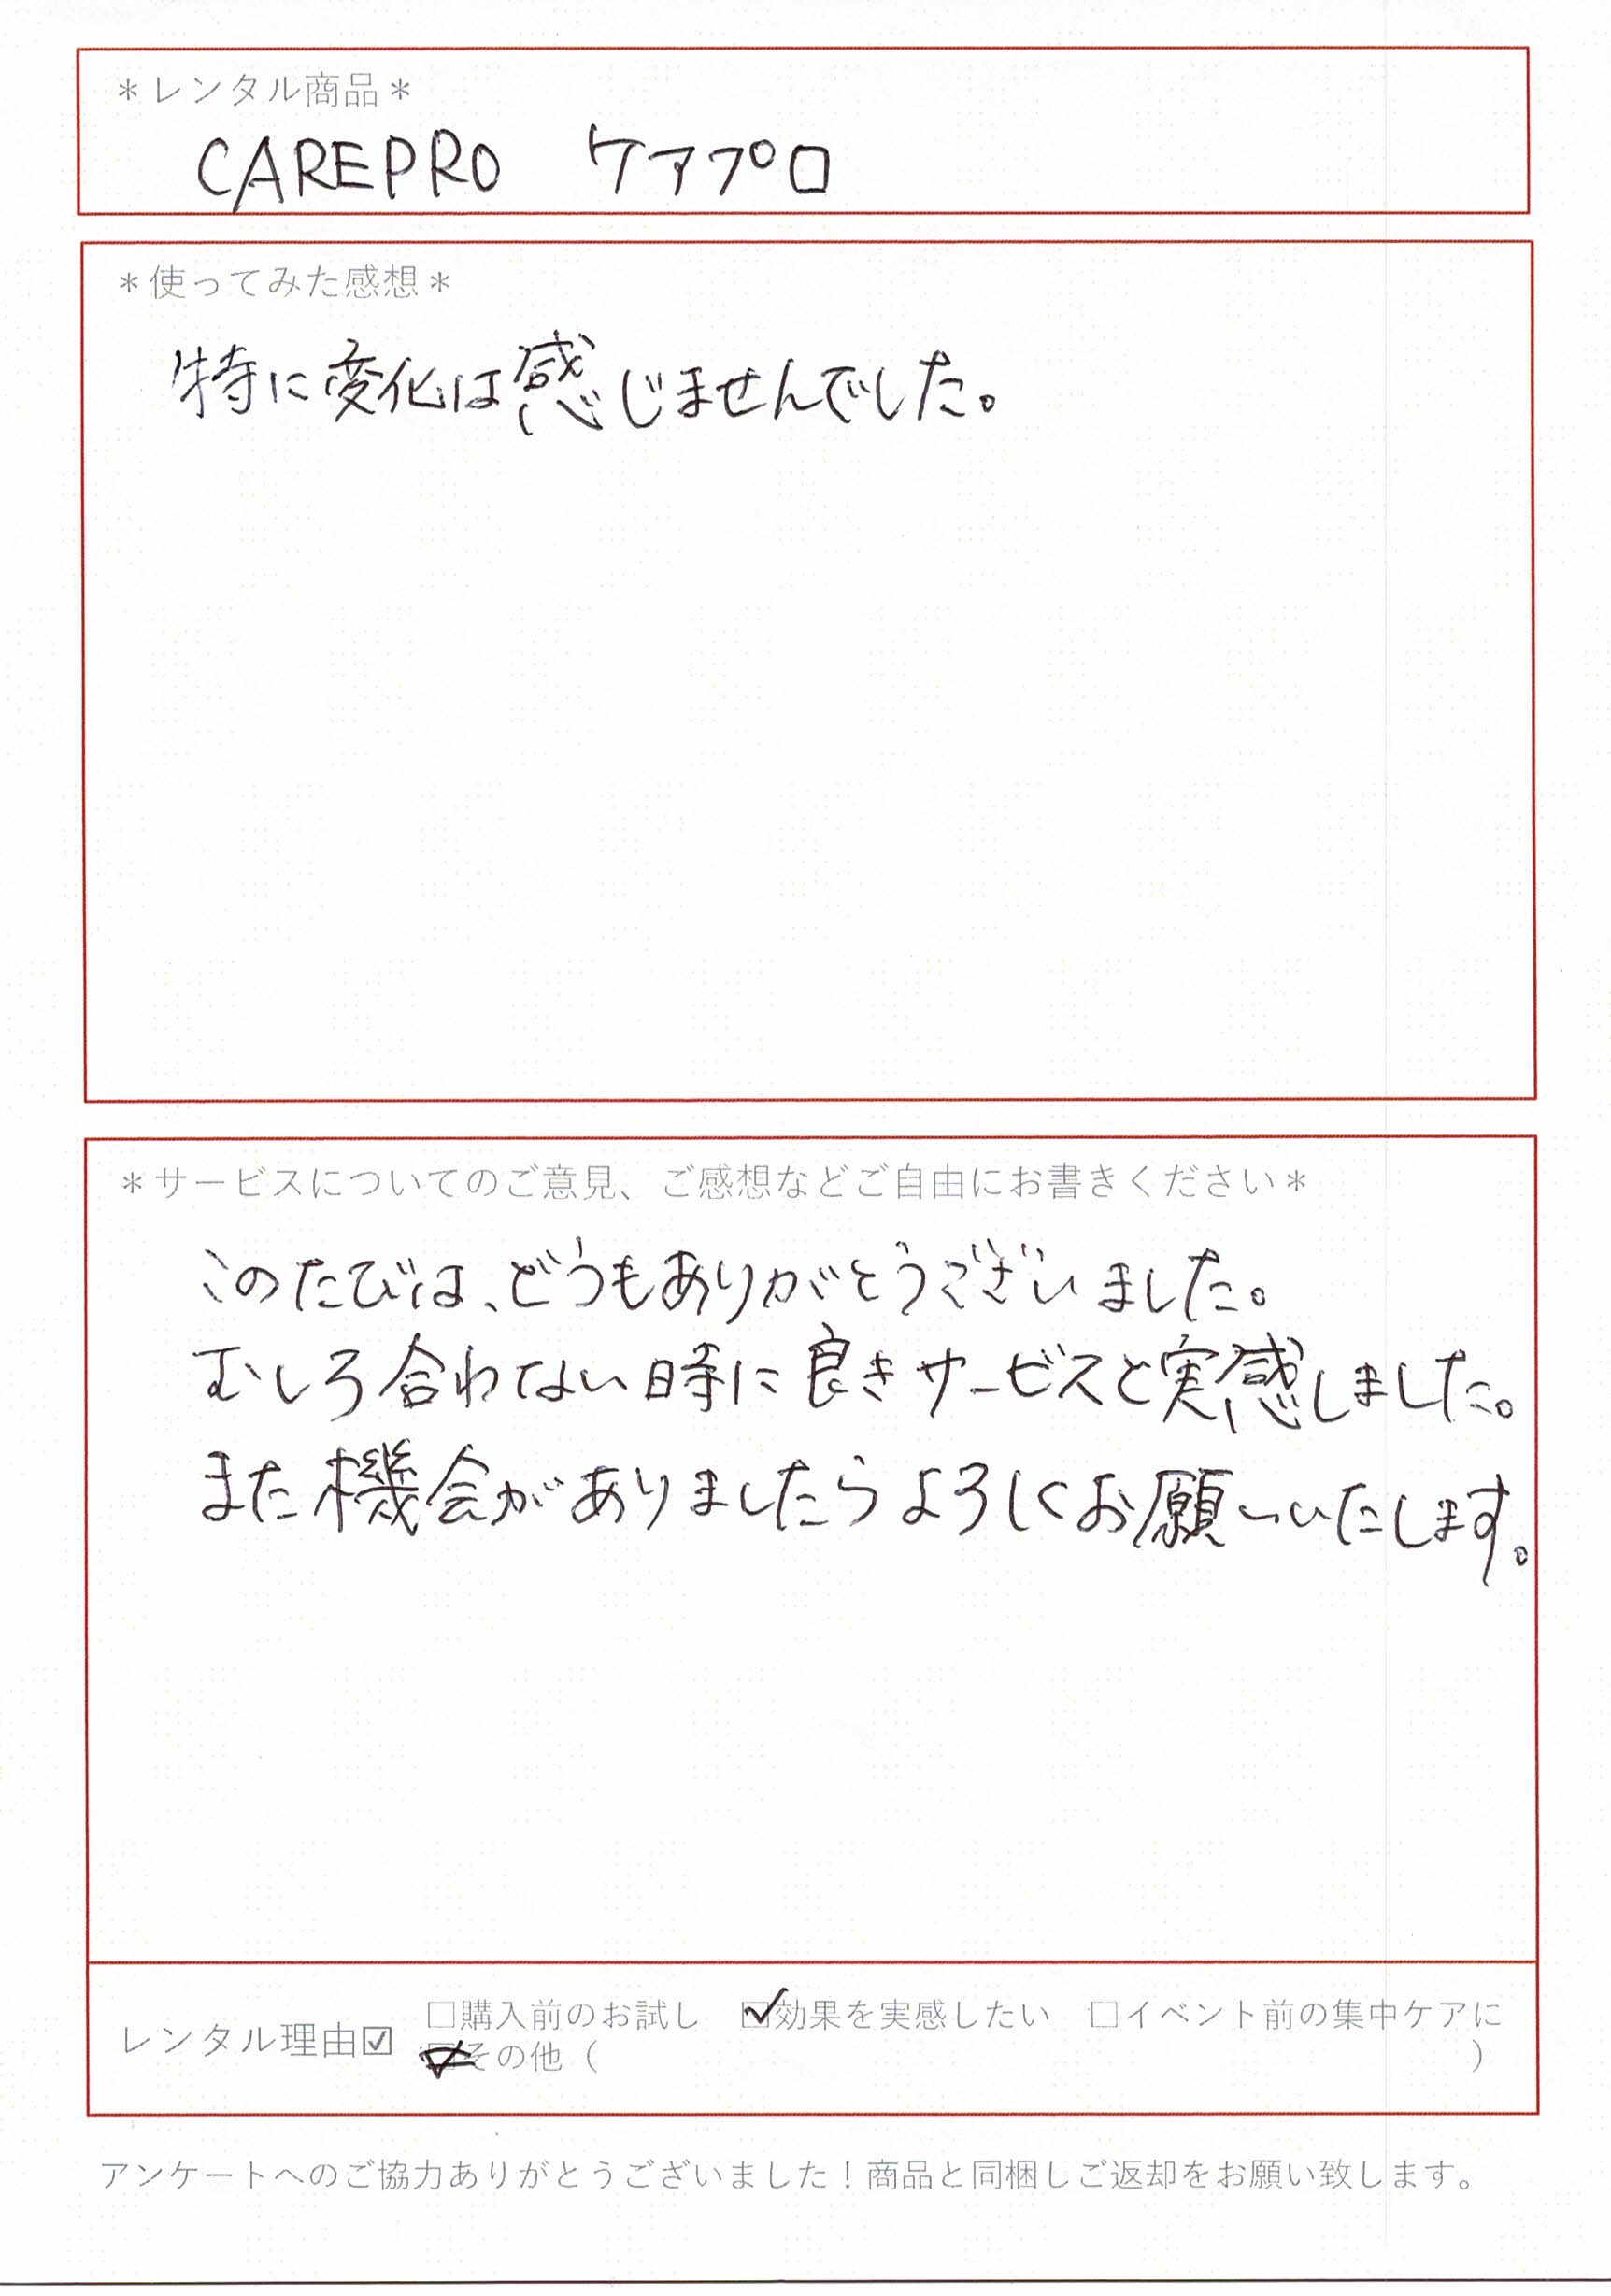 ＊レンタル商品＊
CAREPRO ケアプロ
＊使ってみた感想＊
特に変化は感じませんでした。
＊サービスについてのご意見、ご感想などご自由にお書きください＊
このたびは、どうもありがとうございました。
むしろ合わない時に良きサービスと実感しました。
また機会がありましたらよろしくお願いいたします。
レンタル理由☑ □購入前のお試し ☑効果を実感したい □イベント前の集中ケアに
その他（ ）
アンケートへのご協力ありがとうございました！商品と同梱しご返却をお願い致します。